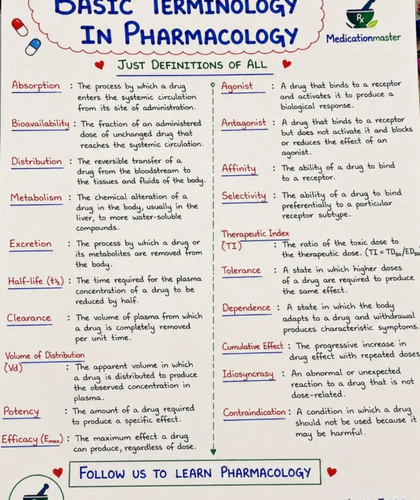 BASIC TERMINOLOGY
IN PHARMACOLOGY
Rx
Medicationmaster
JUST DEFINITIONS OF ALL
Absorption : The process by which a drug
enters the systemic circulation
from its site of administration.
Bioavailability : The fraction of an administered
dose of unchanged drug that
reaches the systemic circulation.
Distribution : The reversible transfer of a
drug from the bloodstream to
the tissues and fluids of the body.
Metabolism : The chemical alteration of a
drug in the body, usually in the
liver, to more water-soluble
compounds.
Excretion : The process by which a drug or
its metabolites are removed from
the body.
Half-life (t½) : The time required for the plasma
concentration of a drug to be
reduced by half.
Clearance : The volume of plasma from which
a drug is completely removed
per unit time.
Volume of Distribution
(Vd) : The apparent volume in which
a drug is distributed to produce
the observed concentration in
plasma.
Potency : The amount of a drug required
to produce a specific effect.
Efficacy (Emax) : The maximum effect a drug
can produce, regardless of dose.
Agonist : A drug that binds to a receptor
and activates it to produce a
biological response.
Antagonist : A drug that binds to a receptor
but does not activate it and blocks
or reduces the effect of an
agonist.
Affinity : The ability of a drug to bind
to a receptor.
Selectivity : The ability of a drug to bind
preferentially to a particular
receptor subtype.
Therapeutic Index
(TI) : The ratio of the toxic dose to
the therapeutic dose. (TI = TD50/ED50
Tolerance : A state in which higher doses
of a drug are required to produce
the same effect.
Dependence : A state in which the body
adapts to a drug and withdrawal
produces characteristic symptoms.
Cumulative Effect : The progressive increase in
drug effect with repeated doses
Idiosyncrasy : An abnormal or unexpected
reaction to a drug that is not
dose-related.
Contraindication : A condition in which a drug
should not be used because it
may be harmful.
FOLLOW US TO LEARN PHARMACOLOGY